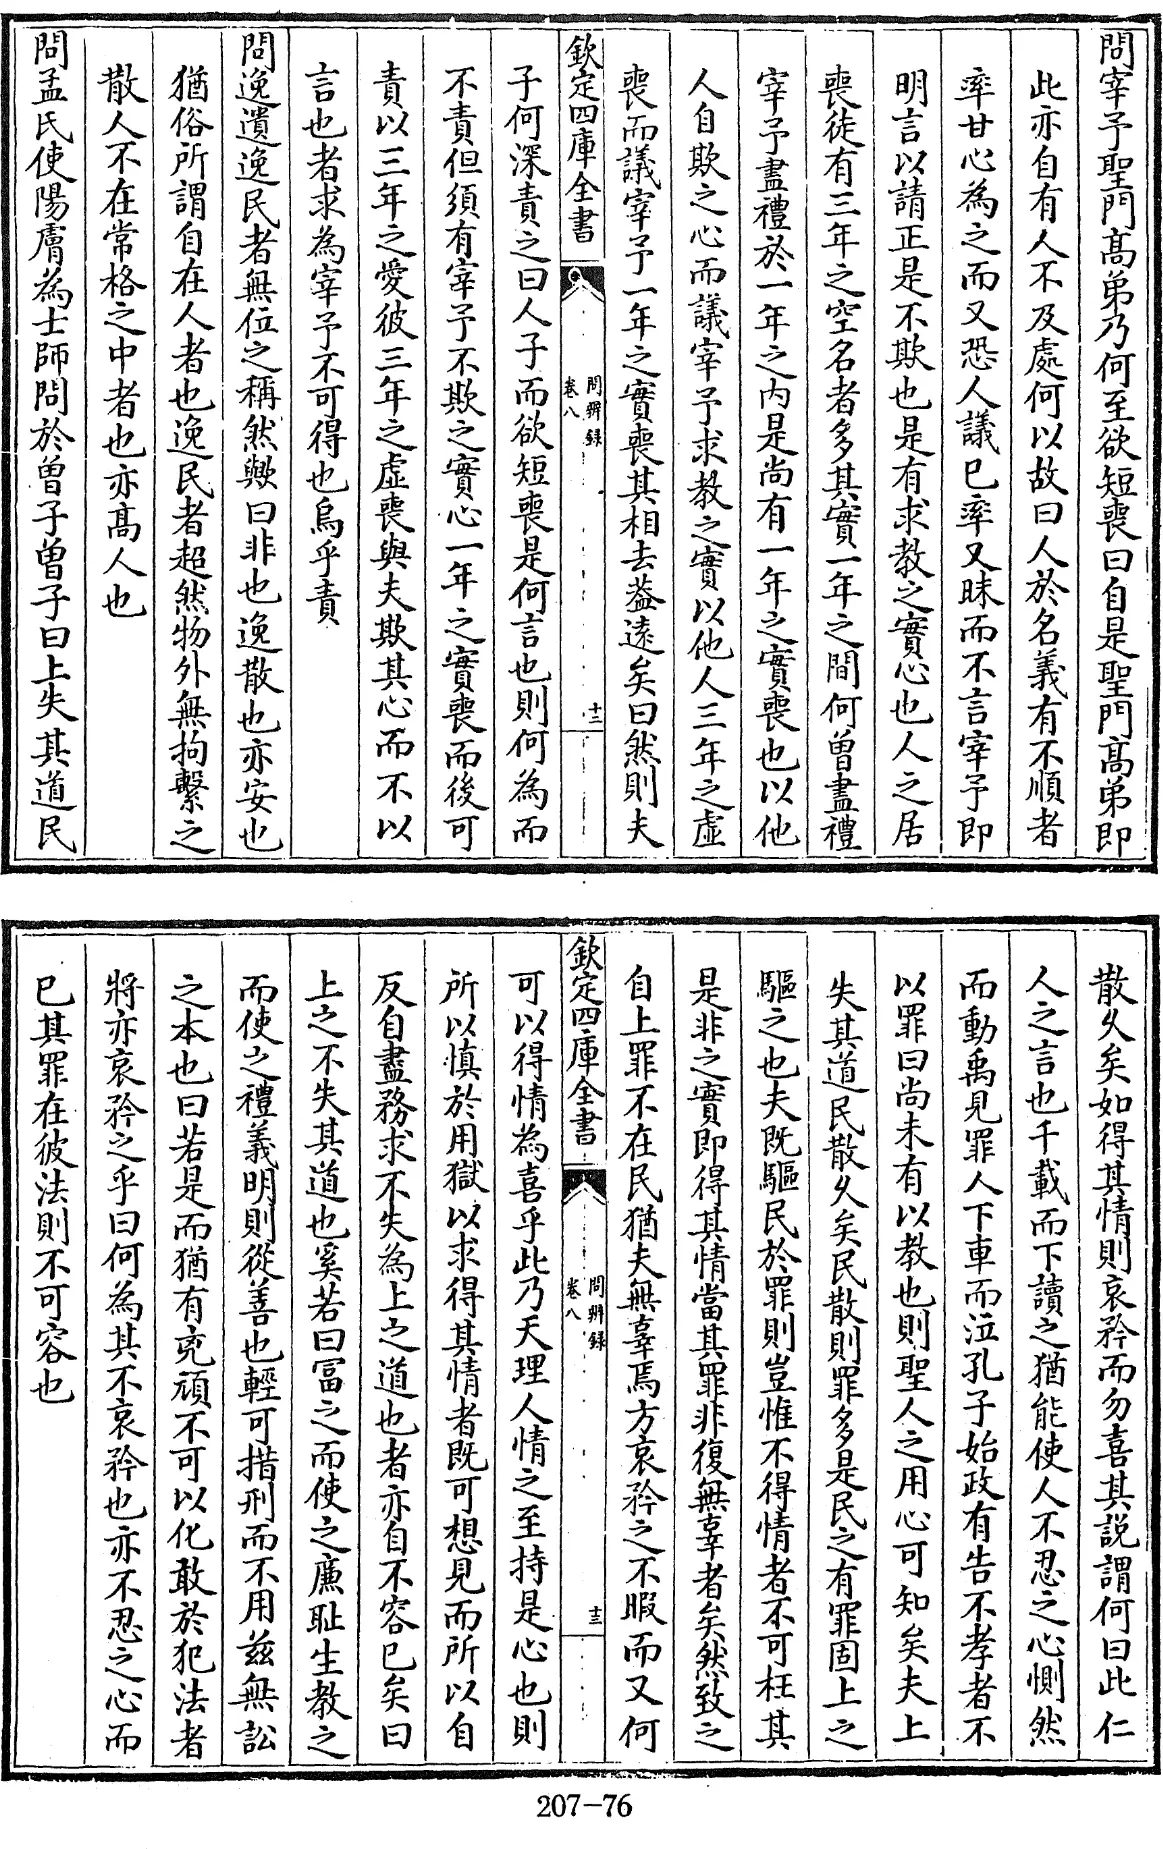 問宰予聖門髙弟乃何至欲短喪曰自是聖門髙弟即
此亦自有人不及處何以故曰人於名義有不順者
率甘心為之而又恐人議已率又昧而不言宰予即
明言以請正是不欺也是有求教之實心也人之居
喪徒有三年之空名者多其實一年之間何曽盡禮
宰予盡禮於一年之内是尚有一年之實喪也以他
人自欺之心而議宰予求教之實以他人三年之虚
喪而議宰予一年之實喪其相去葢遠矣曰然則夫
欽定四庫全書
問辨録
卷八
十二
子何深責之曰人子而欲短喪是何言也則何為而
不責但須有宰予不欺之實心一年之實喪而後可
責以三年之愛彼三年之虚喪與夫欺其心而不以
言也者求為宰予不可得也烏乎責
問逸遺逸民者無位之稱然歟曰非也逸散也亦安也
猶俗所謂自在人者也逸民者超然物外無拘繫之
散人不在常格之中者也亦髙人也
問孟氏使陽膚為士師問於曽子曽子曰上失其道民
散久矣如得其情則哀矜而勿喜其説謂何曰此仁
人之言也千載而下讀之猶能使人不忍之心惻然
而動禹見罪人下車而泣孔子始政有告不孝者不
以罪曰尚未有以教也則聖人之用心可知矣夫上
失其道民散久矣民散則罪多是民之有罪固上之
驅之也夫既驅民於罪則豈惟不得情者不可枉其
是非之實即得其情當其罪非復無辜者矣然致之
自上罪不在民猶夫無辜焉方哀矜之不暇而又何
欽定四庫全書
問辨録
卷八
十三
可以得情為喜乎此乃天理人情之至持是心也則
所以慎於用獄以求得其情者既可想見而所以自
反自盡務求不失為上之道也者亦自不容已矣曰
上之不失其道也奚若曰富之而使之亷耻生教之
而使之禮義明則從善也輕可措刑而不用兹無訟
之本也曰若是而猶有兇頑不可以化敢於犯法者
將亦哀矜之乎曰何為其不哀矜也亦不忍之心而
已其罪在彼法則不可容也
207-76